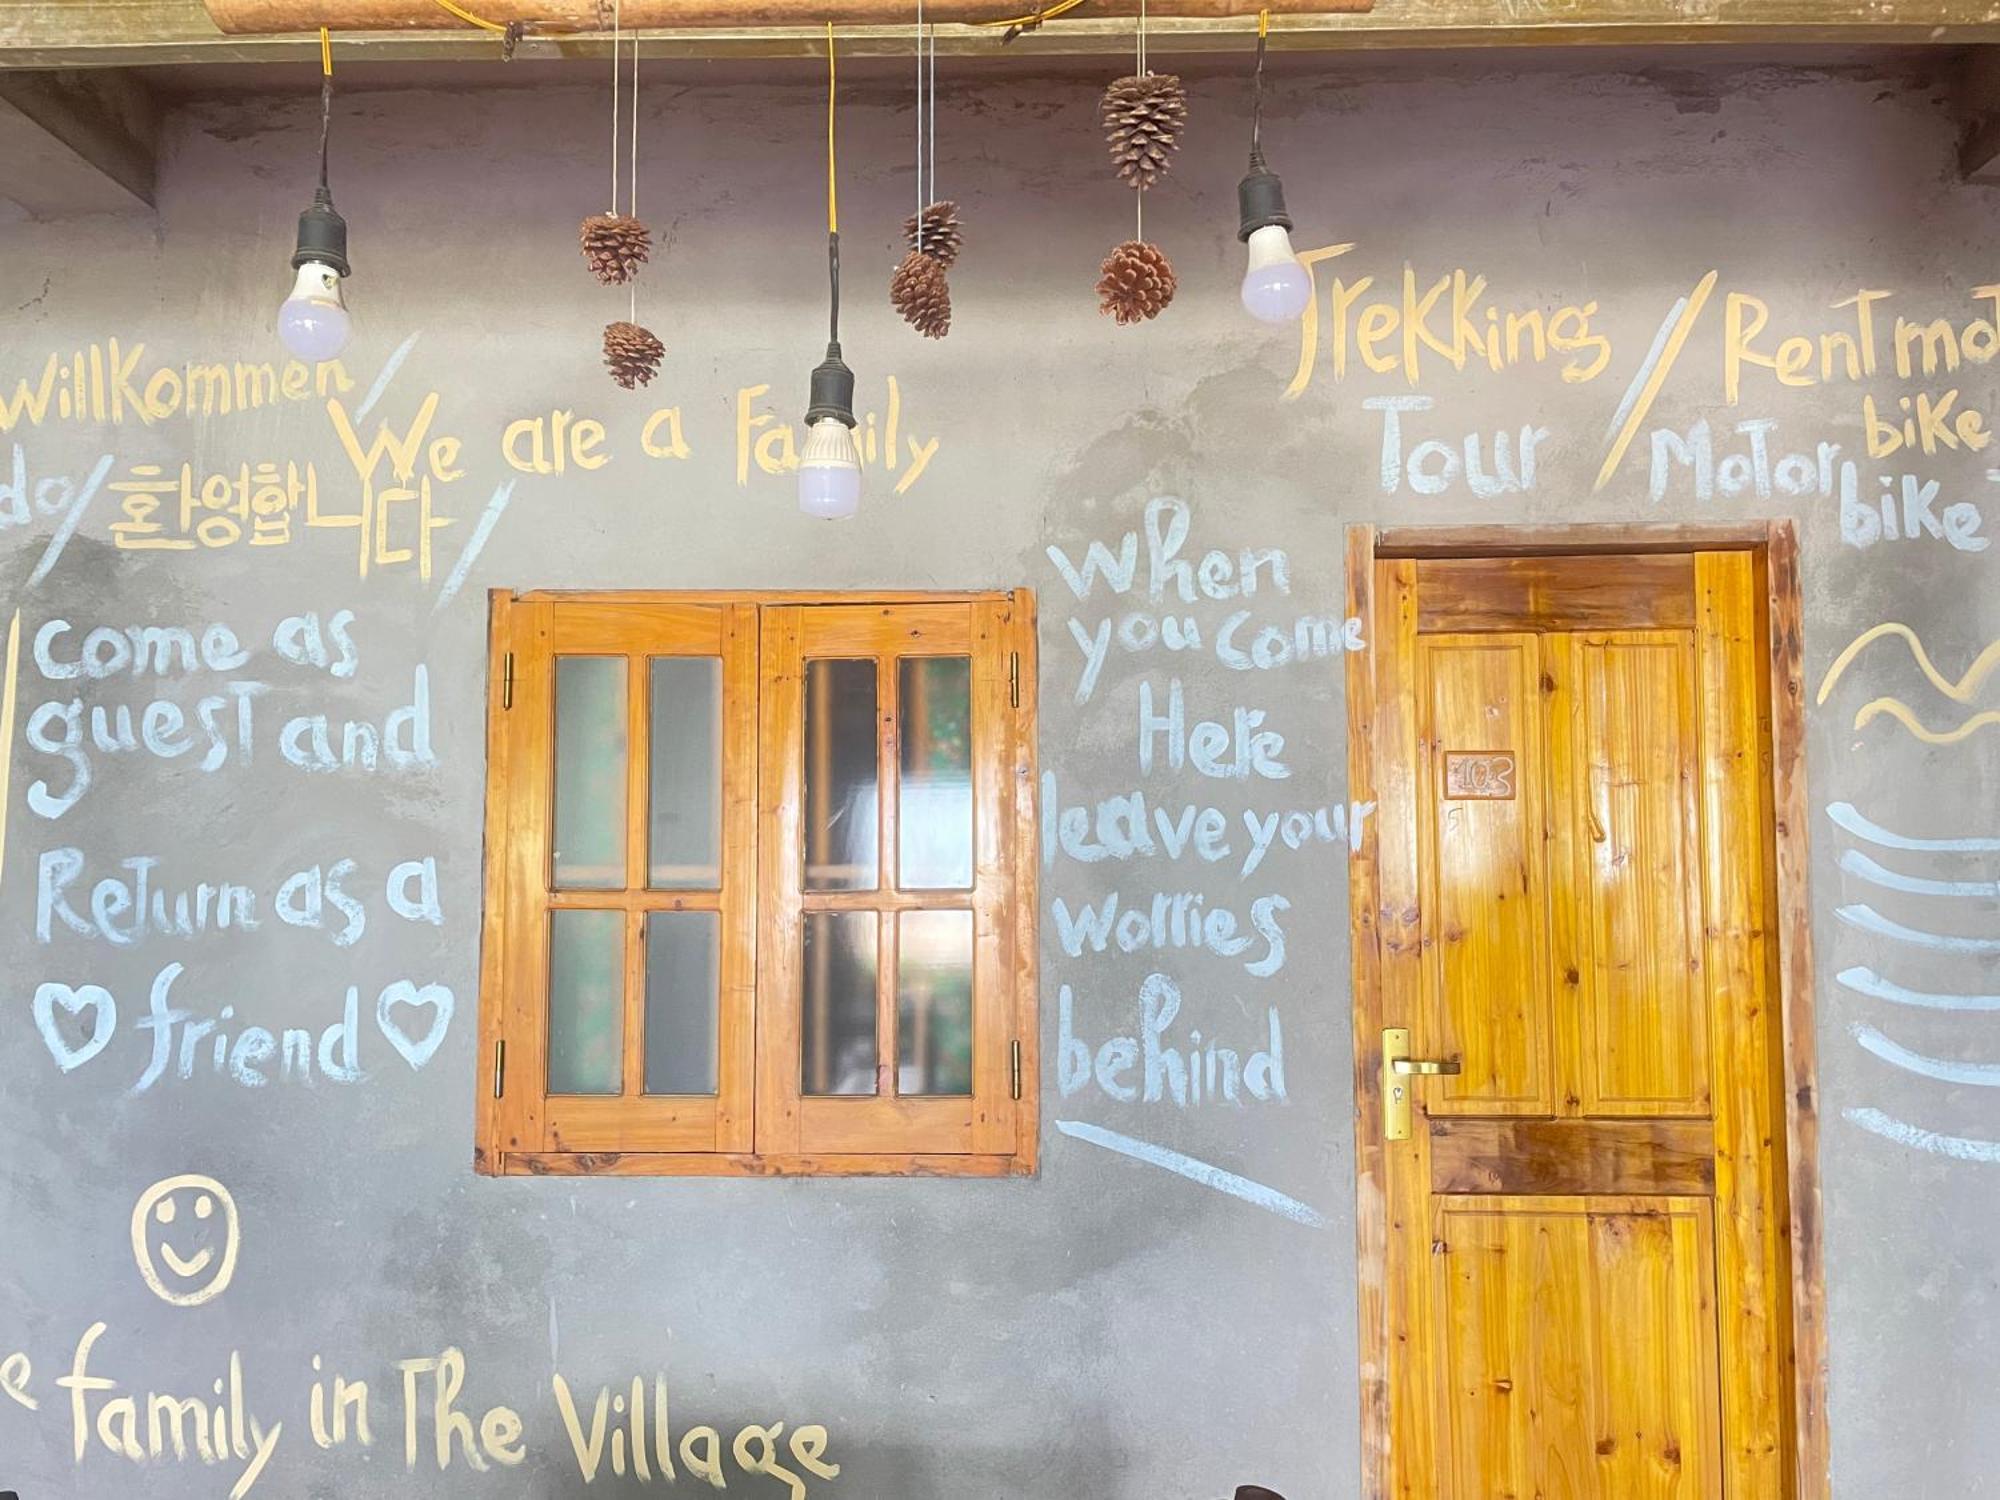 Willkommen /
do / 환영합니다 /
We are a Family
come as
guest and
Return as a
♡ friend ♡
family in The Village
when
you come
Here
leave your
worries
behind
Trekking / Rent mot
bike
Tour / Motor
bike
103